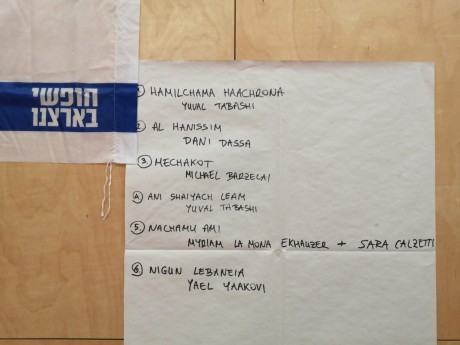 חופשי
בארצנו
① HAMILCHAMA HAACHRONA
YUVAL TABASHI
2 AL HANISSIM
DANI DASSA
③ MECHAKOT
MICHAEL BARZELAI
④ ANI SHAIYACH LEAM
YUVAL TABASHI
⑤ NACHAMU AMI
MYRIAM LA MONA EKHAUZER + SARA CALZETTI
⑥ NIGUN LEBANEIA
YAEL YAAKOVI